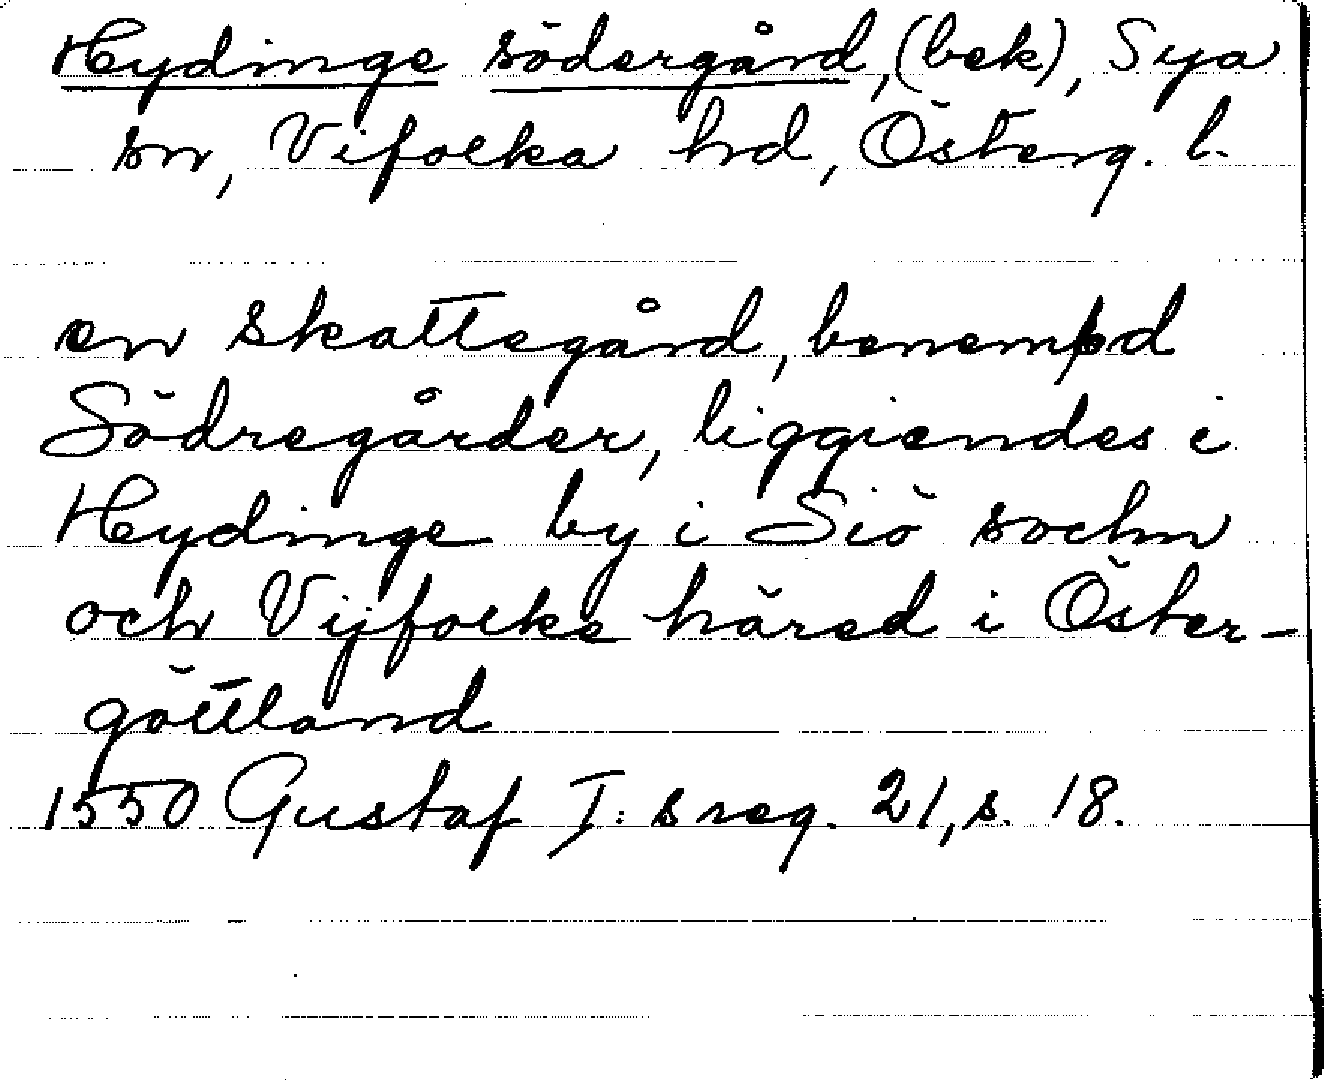 Hydinge södergård, (bek), Sya
sn, Vifolka hd, Österg. l.
en skattegård, benempd
Södregårder, liggiendes i
Hydinge by i Siö sochn
och Vijfolke häred i Öster-
göttland
1550 Gustaf I: s reg. 21, s. 18.